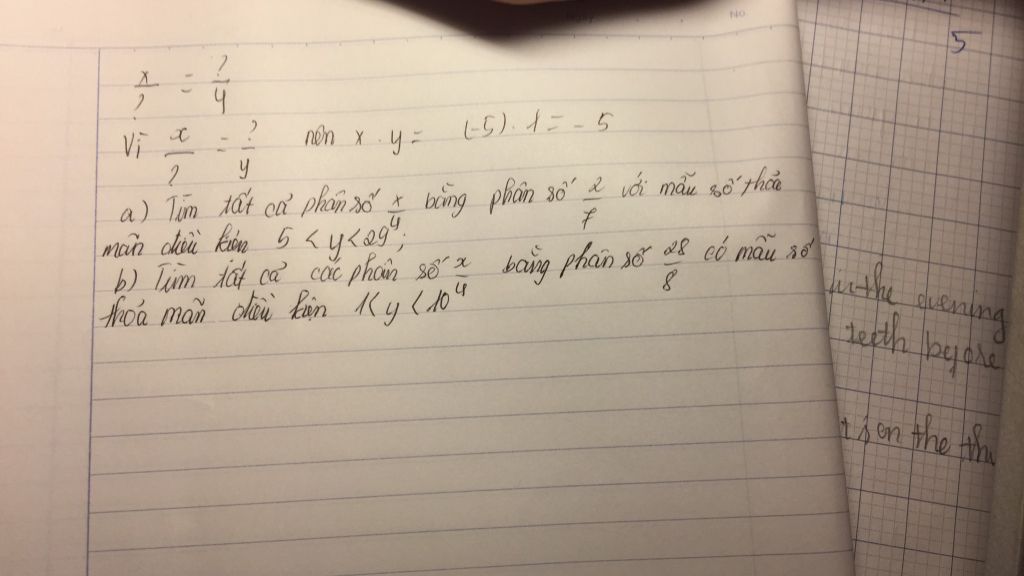 x/? = ?/y
Vì x/? = ?/y nên x . y = (-5) . 1 = - 5
a) Tìm tất cả phân số x/y bằng phân số 2/7 với mẫu số thoả
mãn điều kiện 5 < y < 29;
b) Tìm tất cả các phân số x/y bằng phân số 28/8 có mẫu số
thoả mãn điều kiện 1 < y < 10
No.
5
in the evening
teeth before
on the